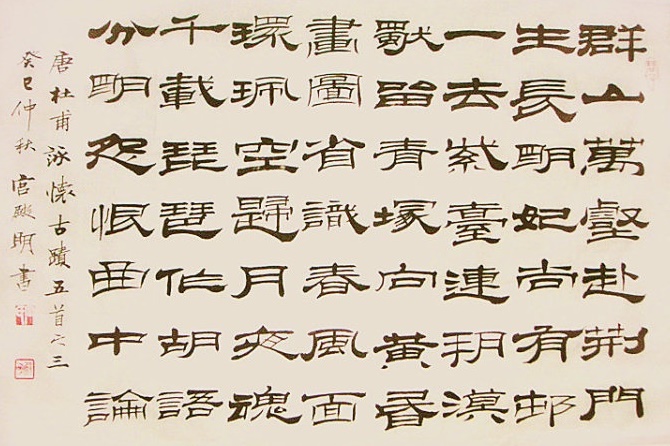 群山萬壑赴荊門
生長明妃尚有邨
一去紫臺連朔漠
獨留青塚向黃昏
畫圖省識春風面
環珮空歸月夜魂
千載琵琶作胡語
分明怨恨曲中論
唐杜甫詠懷古蹟五首之三
癸巳仲秋宮明書